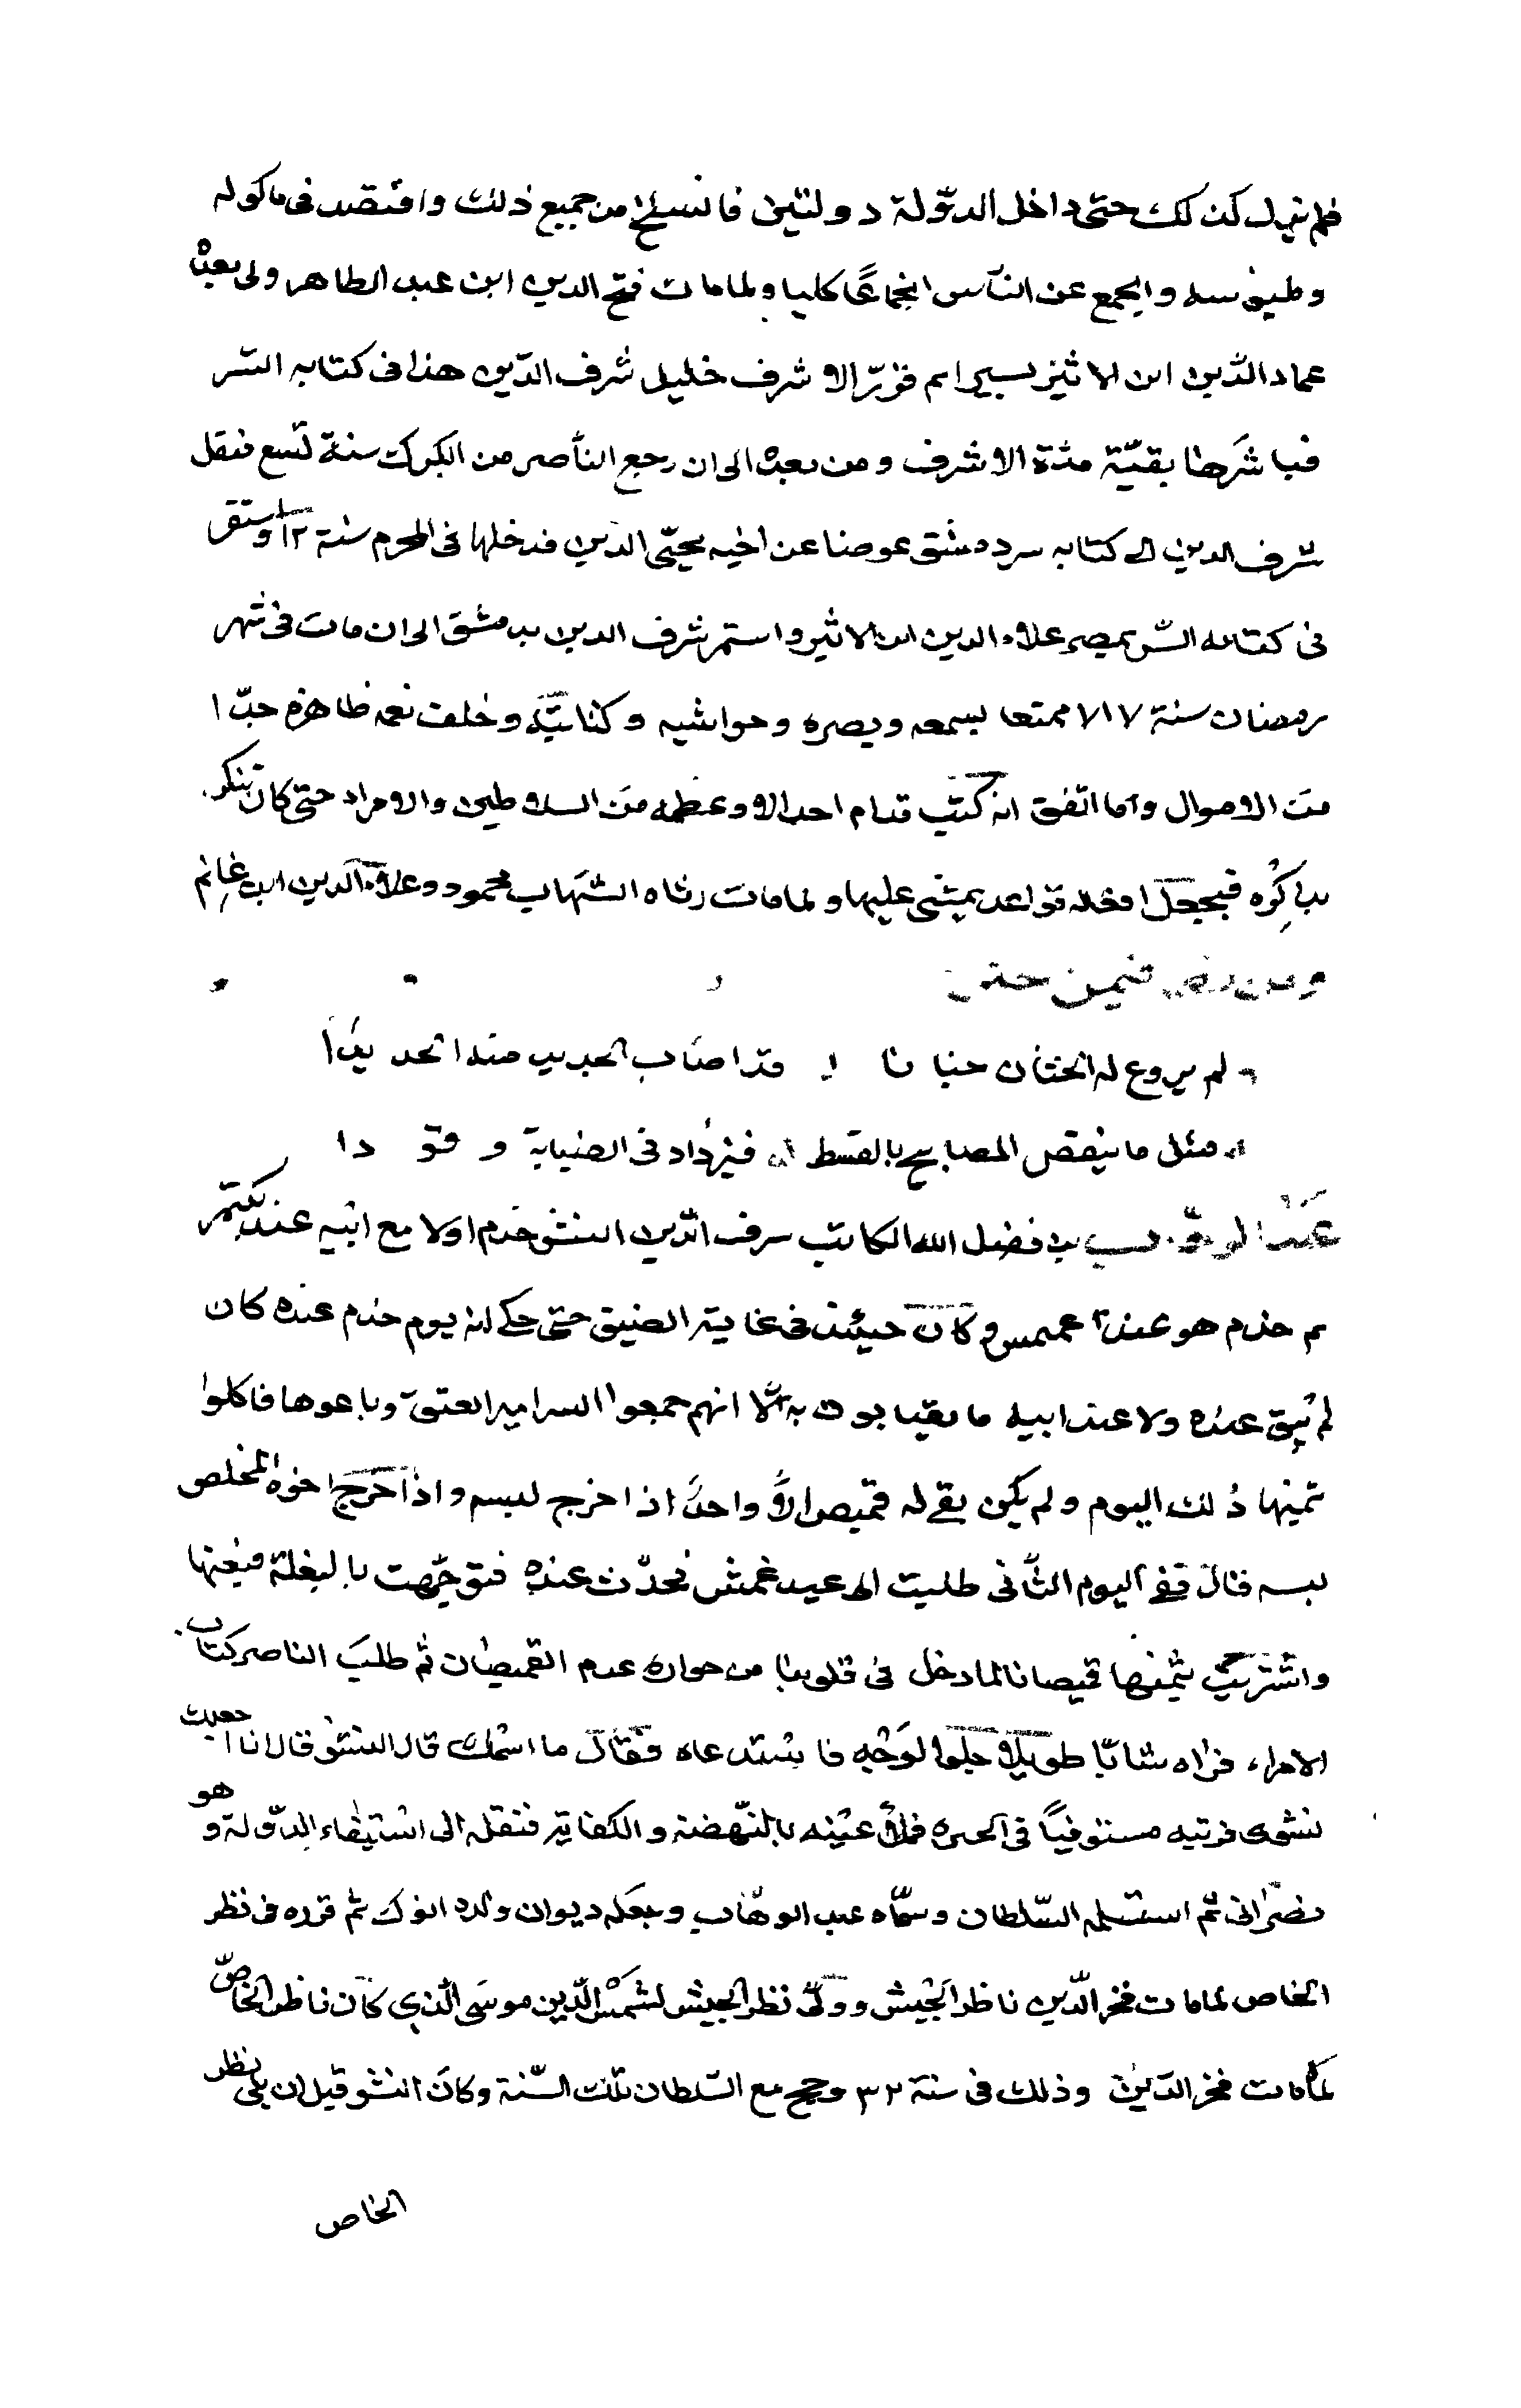 فلم يزل كذلك حتى داخل الدولة دولتين فانسلخ من جميع ذلك واقتصد فى ماكوله
وملبوسه وانجمع عن الناس انجماعًا كليا ولما مات فتح الدين ابن عبد الظاهر ولى بعده
عماد الدين ابن الاثير يسيرا ثم قرّر الاشرف خليل شرف الدّين هذا فى كتابه السّر
فباشرها بقيّة مدّة الاشرف ومن بعده الى ان رجع الناصر من الكرك سنة تسع فنقل
شرف الدين الى كتابه سر دمشق عوضا عن اخيه يحيّى الدين فدخلها فى المحرم سنة ١٢ واستقر
فى كتابه السّر بمصر علاء الدين ابن الاثير واستمر شرف الدين بدمشق الى ان مات فى شهر
رمضان سنة ٧١٧ ممتعا بسمعه وبصره وحواشيه وكتابته وخلف نعمه ظاهرة جدّا
من الاموال وما اتفق انه كتب قدام احد الا وعظمه من السلاطين والامراء حتى كان تنكر
يذكره فيجعل افعاله قواعد يمشى عليها ولما مات رثاه الشهاب محمود وعلاء الدين ابن غانم
ومن فيمن ختن
لم يروع له الختان جنانا قد اصاب الحديد منه الحديدا
مثل ما ينقص المصابيح بالقط فيزداد فى الضياية وقودا
عبد الوهاب بن فضل الله الكاتب شرف الدّين النشو خدم اولا مع ابيه عند بكتمر
ثم خدم هو عند وكان حينئذ فى غاية الضيق حتى حكى انه يوم خدم عنده كان
لم يبق عنده ولا عند ابيه ما يقتاتون به الّا انهم جمعوا السراميز العتق وباعوها فاكلوا
ثمنها ذلك اليوم ولم يكن بقى له قميص الّا واحدًا اذا خرج لبسه واذا خرج اخوه المخلص
لبسه قال ففى اليوم الثّانى طلبت الى عيد نحدّث عنده فتوجّهت بالبغلة فبعتها
واشتريت بثمنها قمصانا لما دخل فى قلوبنا من حراره عدم القمصان ثم طلب الناصر كتاب
الامراء فراه شابّا طويلا حلو الوجه فاستدعاه وقال ما اسمك قال النشو قال انا اجعلك
نشوى فرتبه مستوفيًا فى الجيزه فملأ عينه بالنّهضة والكفاية فنقله الى استيفاء الدّولة وهو
نصرانى ثم استسلمه السّلطان وسمّاه عبد الوهاب وجعله ديوان ولده انوك ثم قرره فى نظر
الخاص لما مات فخر الدّين ناظر الجيش وولّى نظر الجيش لشمس الدّين موسى الّذى كان ناظر الخاصّ
لمّا مات فخر الدّين وذلك فى سنة ٣٢ وحج مع السّلطان تلك السّنة وكان النشو قبل ان يلى نظر
الخاص